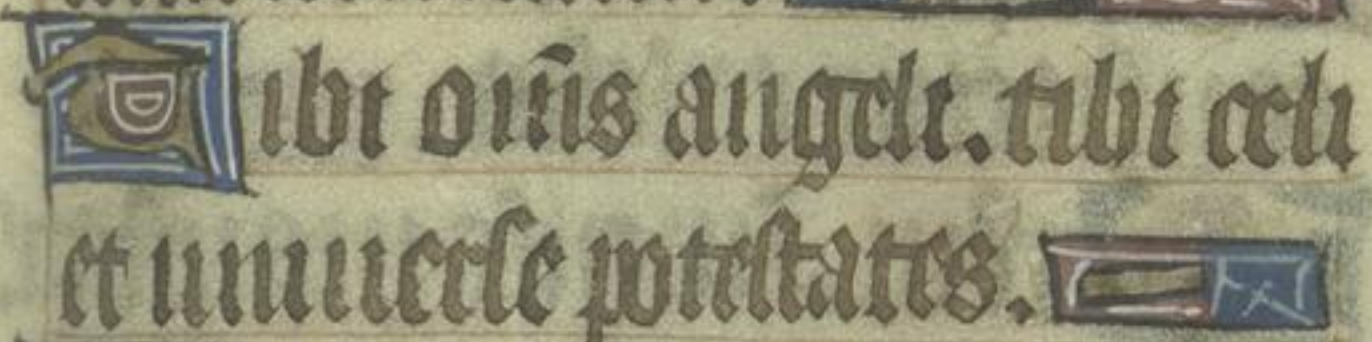 Tibi om̅s angeli. tibi celi
et uniuerse potestates.